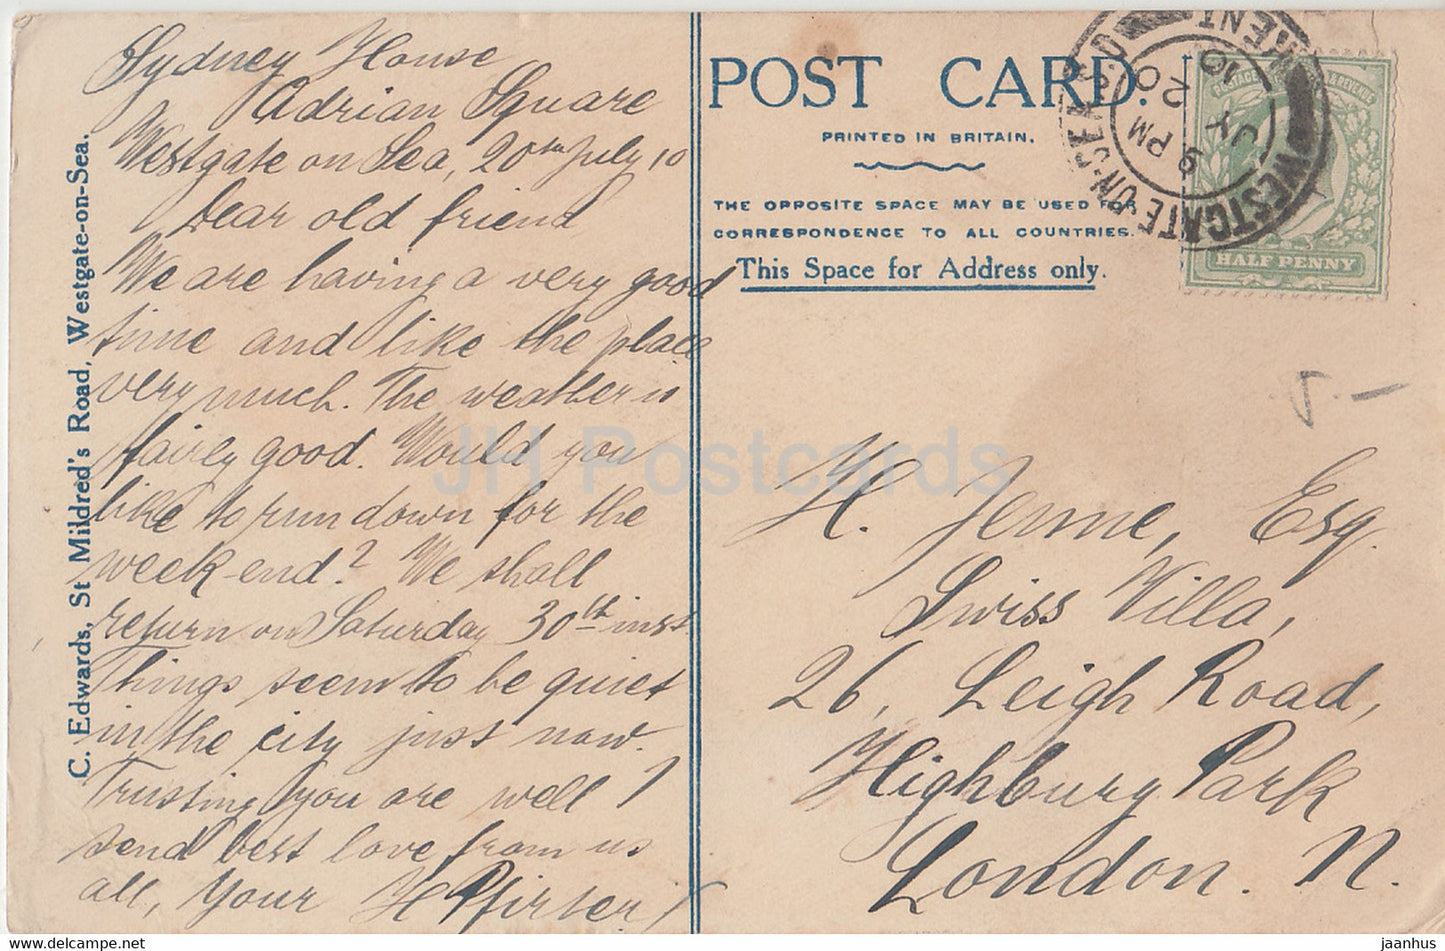 Sydney House
Adrian Square
Westgate on Sea, 20th July 10
Dear old friend
We are having a very good
time and like the place
very much. The weather is
fairly good. Would you
like to run down for the
week-end? We shall
return on Saturday 30th inst
Things seem to be quiet
in the city just now.
Trusting you are well I
send best love from us
all, Your H Pfirter
C. Edwards, St Mildred's Road, Westgate-on-Sea.
POST CARD.
PRINTED IN BRITAIN.
THE OPPOSITE SPACE MAY BE USED FOR
CORRESPONDENCE TO ALL COUNTRIES.
This Space for Address only.
WESTGATE-ON-SEA S.O
KENT
9 PM
JY
20
10
POSTAGE & REVENUE
HALF PENNY
H. Jenne, Esq.
Swiss Villa,
26, Leigh Road,
Highbury Park
London. N.
JH Postcards
delcampe.net
jaanhus